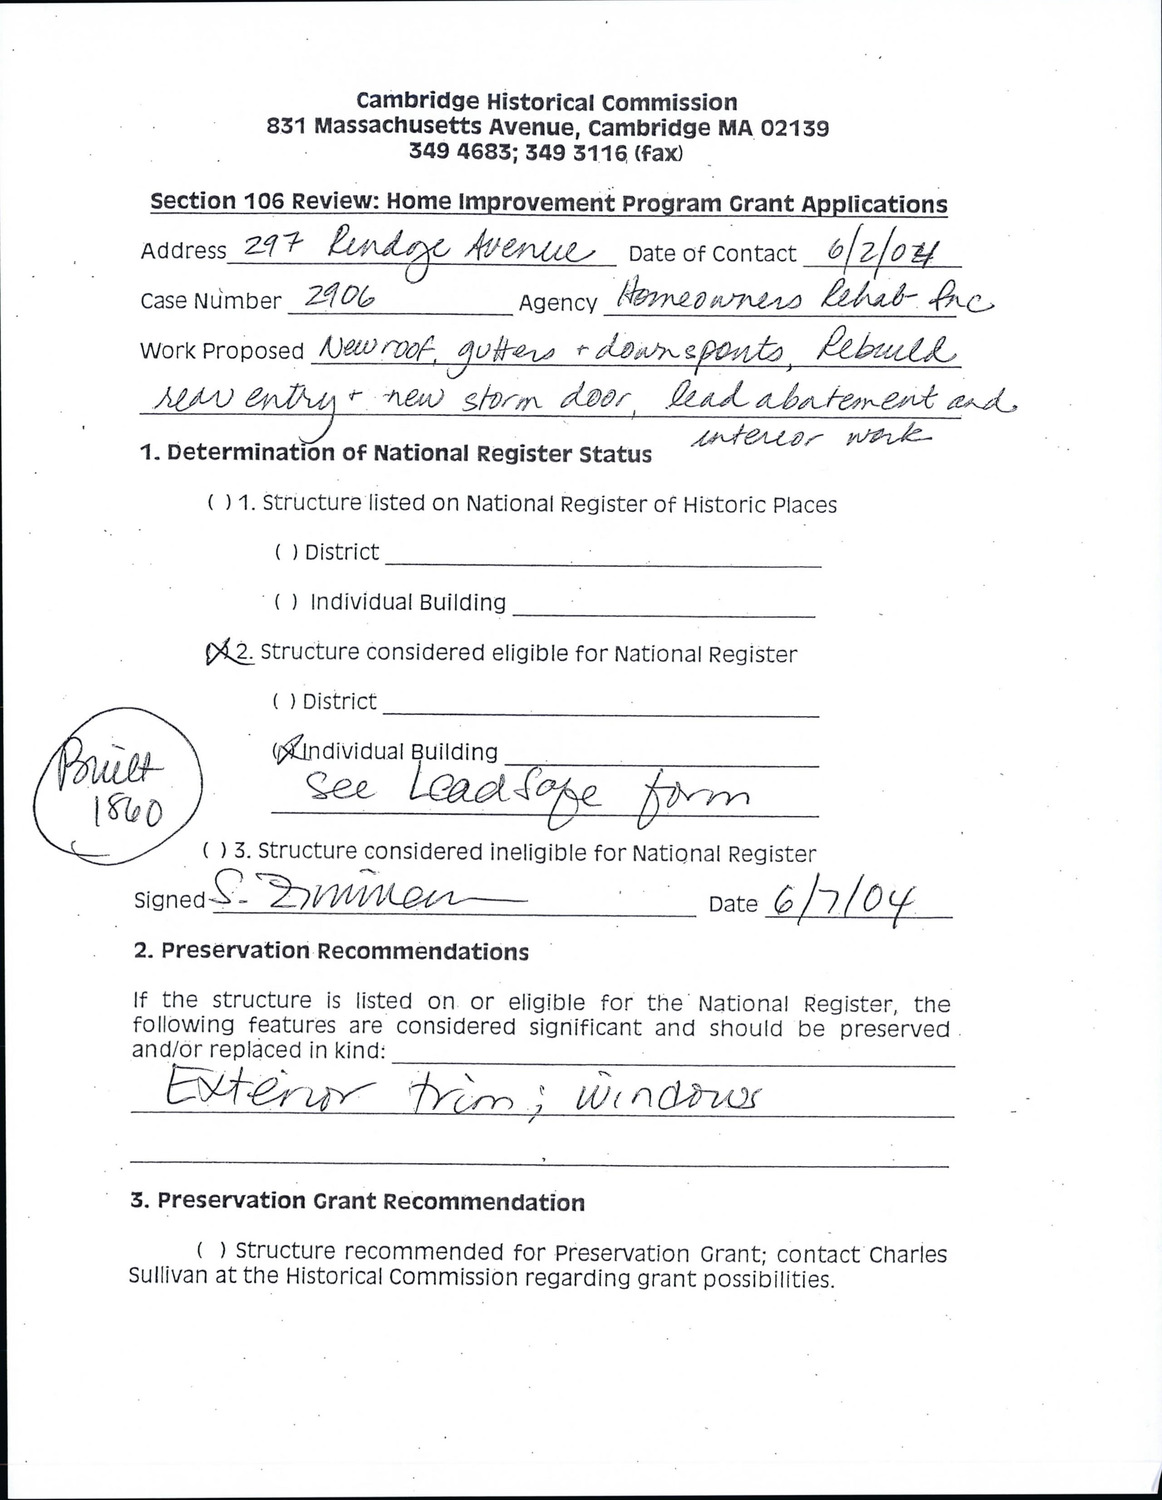 Cambridge Historical Commission
831 Massachusetts Avenue, Cambridge MA 02139
349 4683; 349 3116 (fax)
Section 106 Review: Home Improvement Program Grant Applications
Address 297 Rindge Avenue Date of Contact 6/2/04
Case Number 2906 Agency Homeowners Rehab Inc
Work Proposed New roof, gutters + downspouts, Rebuild
rear entry + new storm door, lead abatement and
interior work
1. Determination of National Register Status
( ) 1. Structure listed on National Register of Historic Places
( ) District
( ) Individual Building
(X) 2. Structure considered eligible for National Register
( ) District
(X) Individual Building
See LeadSafe form
Built
1860
( ) 3. Structure considered ineligible for National Register
Signed S. Zimmerman Date 6/7/04
2. Preservation Recommendations
If the structure is listed on or eligible for the National Register, the
following features are considered significant and should be preserved
and/or replaced in kind:
Exterior trim; windows
3. Preservation Grant Recommendation
( ) Structure recommended for Preservation Grant; contact Charles
Sullivan at the Historical Commission regarding grant possibilities.